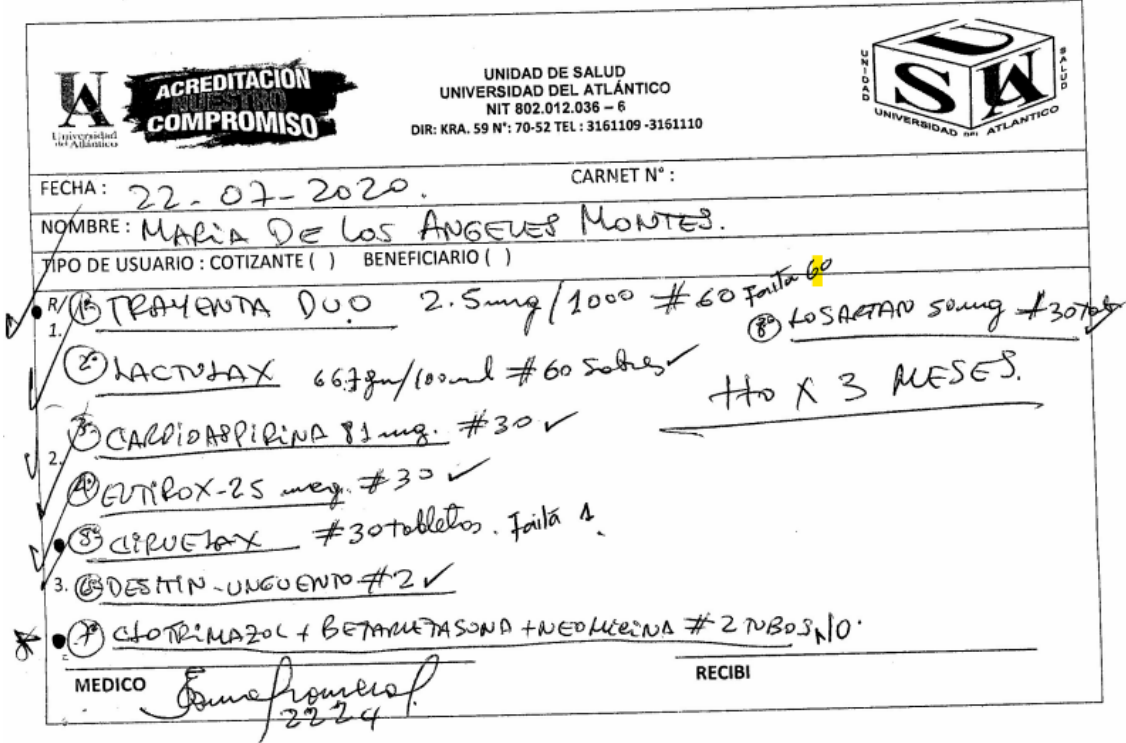 Universidad del Atlántico
ACREDITACIÓN
NUESTRO
COMPROMISO
UNIDAD DE SALUD
UNIVERSIDAD DEL ATLÁNTICO
NIT 802.012.036 – 6
DIR: KRA. 59 N°: 70-52 TEL : 3161109 -3161110
UNIDAD SALUD
USUA
UNIVERSIDAD DEL ATLANTICO
FECHA : 22-07-2020. CARNET N° :
NOMBRE : MARÍA DE LOS ANGELES MONTES.
TIPO DE USUARIO : COTIZANTE ( ) BENEFICIARIO ( )
R/ 1. 1º TRAYENTA DUO 2.5mg/1000 #60 Falta 60
8º LOSARTAN 50mg #30 Tab
2º LACTULAX 66.7gm/100ml #60 Sobres
tto X 3 MESES.
2. 3º CARDIOASPIRINA 81mg. #30
4º EUTIROX-25 mcg. #30
5º CIRUELAX #30 tabletas. Falta 1.
3. 6º DESITIN-UNGUENTO #2
7º CLOTRIMAZOL + BETAMETASONA + NEOMICINA #2 TUBOS NO.
MEDICO RECIBI
2224